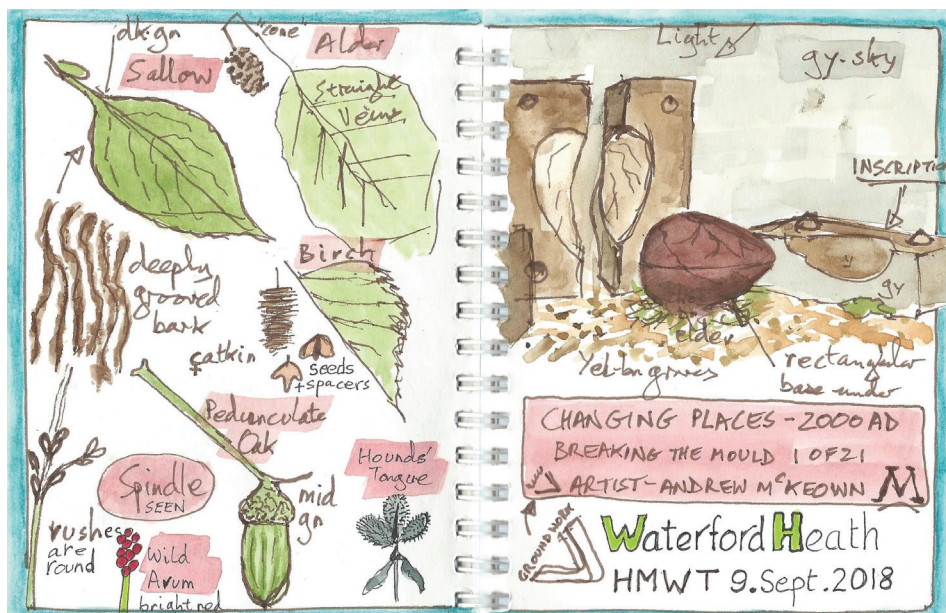 dk·gn
Sallow
"cone"
Alder
straight
veins
deeply
grooved
bark
Birch
♀catkin
seeds
+ spacers
Pedunculate
Oak
mid
gn
Hounds'
Tongue
Spindle
SEEN
rushes
are
round
Wild
Arum
bright red
Light
gy·sky
INSCRIPTIO
y
gy
elder
rectangular
base under
CHANGING PLACES – 2000 AD
BREAKING THE MOULD 1 OF 21
ARTIST – ANDREW McKEOWN M
GROUNDWORK
Waterford Heath
HMWT 9. Sept. 2018